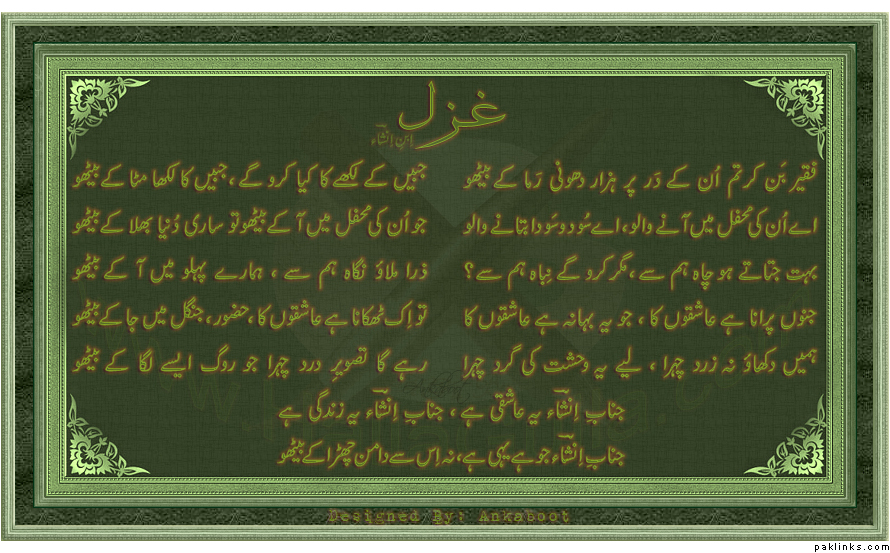 غزل
ابنِ اِنشاء
فقیر بَن کر تم اُن کے دَر پر ہزار دھونی رَما کے بیٹھو جبیں کے لکھے کا کیا کرو گے، جبیں کا لکھا مٹا کے بیٹھو
اے اُن کی محفل میں آنے والو، اے سُود و سَودا بتانے والو جو اُن کی محفل میں آ کے بیٹھو تو ساری دُنیا بھلا کے بیٹھو
بہت جتاتے ہو چاہ ہم سے، مگر کرو گے نِباہ ہم سے؟ ذرا مِلاؤ نگاہ ہم سے، ہمارے پہلو میں آ کے بیٹھو
جنوں پرانا ہے عاشقوں کا، جو یہ بہانہ ہے عاشقوں کا تو اِک ٹھکانا ہے عاشقوں کا، حضور، جنگل میں جا کے بیٹھو
ہمیں دکھاؤ نہ زرد چہرا، لیے یہ وحشت کی گرد چہرا رہے گا تصویرِ درد چہرا جو روگ ایسے لگا کے بیٹھو
جنابِ اِنشاء یہ عاشقی ہے، جنابِ اِنشاء یہ زندگی ہے
جنابِ اِنشاء جو ہے یہی ہے، نہ اِس سے دامن چھڑا کے بیٹھو
Designed By: Ankaboot
paklinks.com